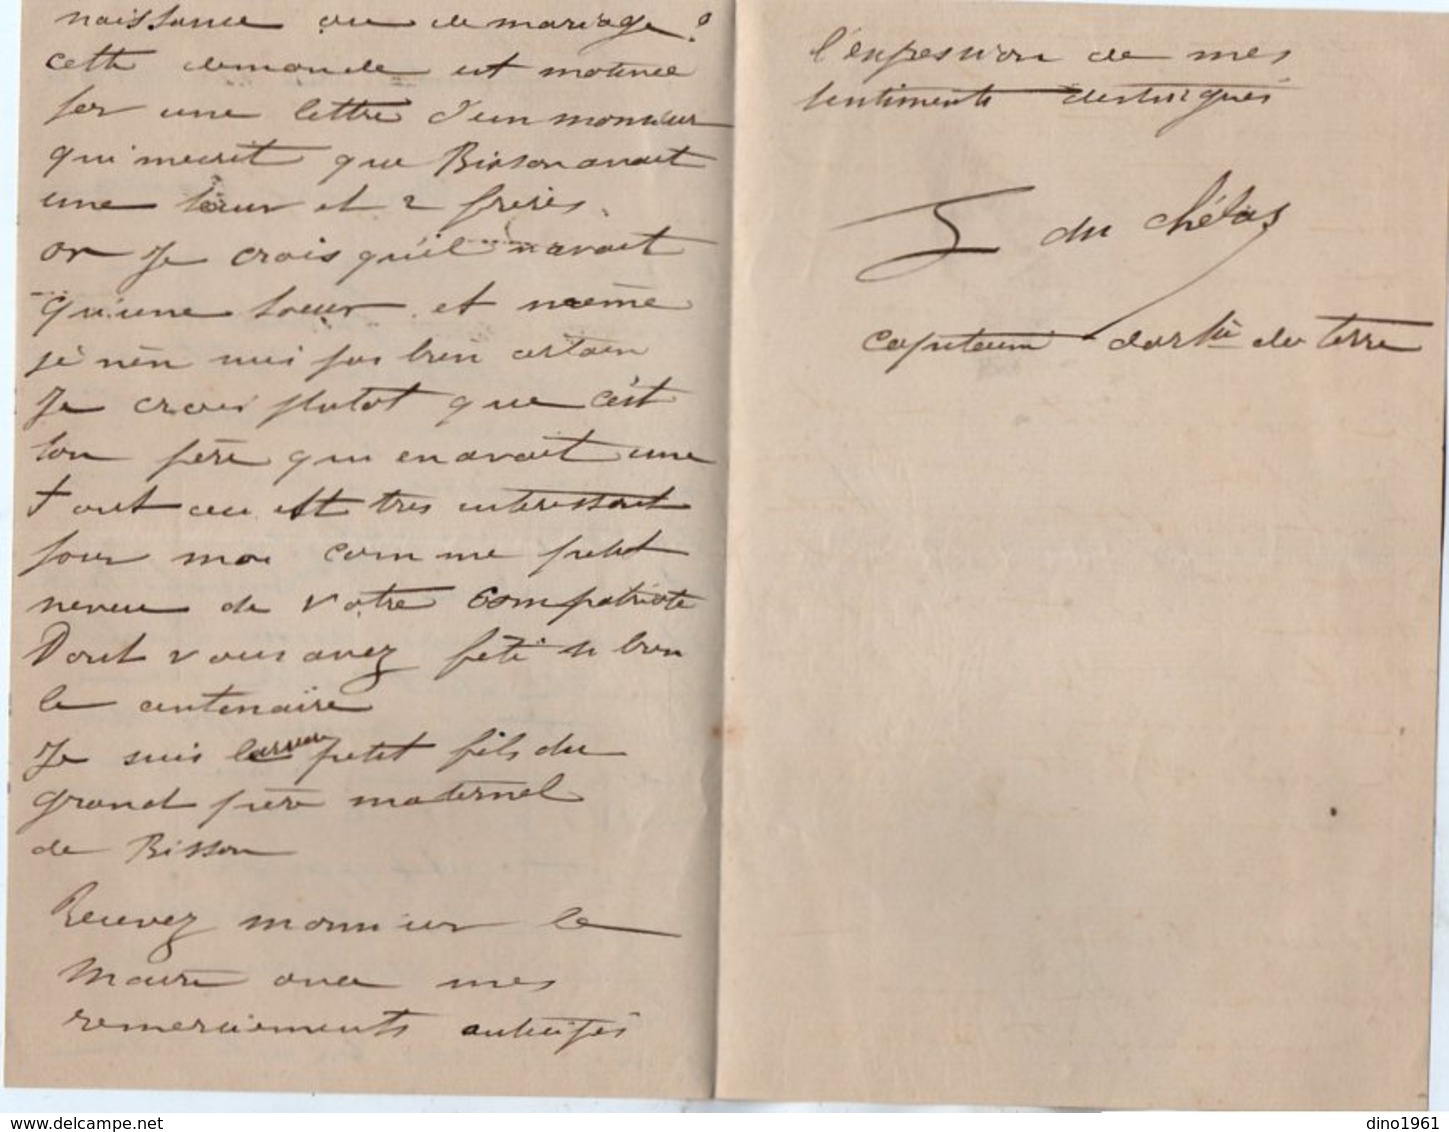 naissance ou de mariage?
cette demande est motivée
par une lettre d'un monsieur
qui m'ecrit que Bisson avait
une sœur et 2 freres.
or Je crois qu'il n'avait
qu'une sœur et meme
je n'en suis pas bien certain
Je crois plutot que c'est
son père qui en avait une
Tout ceci est tres interessant
pour moi comme petit
neveu de votre Compatriote
Dont vous avez fété si bien
le centenaire
Je suis l'arriere petit fils du
grand père maternel
de Bisson
Recevez monsieur le
Maire avec mes
remerciements anticipés
l'expression de mes
sentiments distingués
du Chélas
capitaine d'artie de terre
dino1961